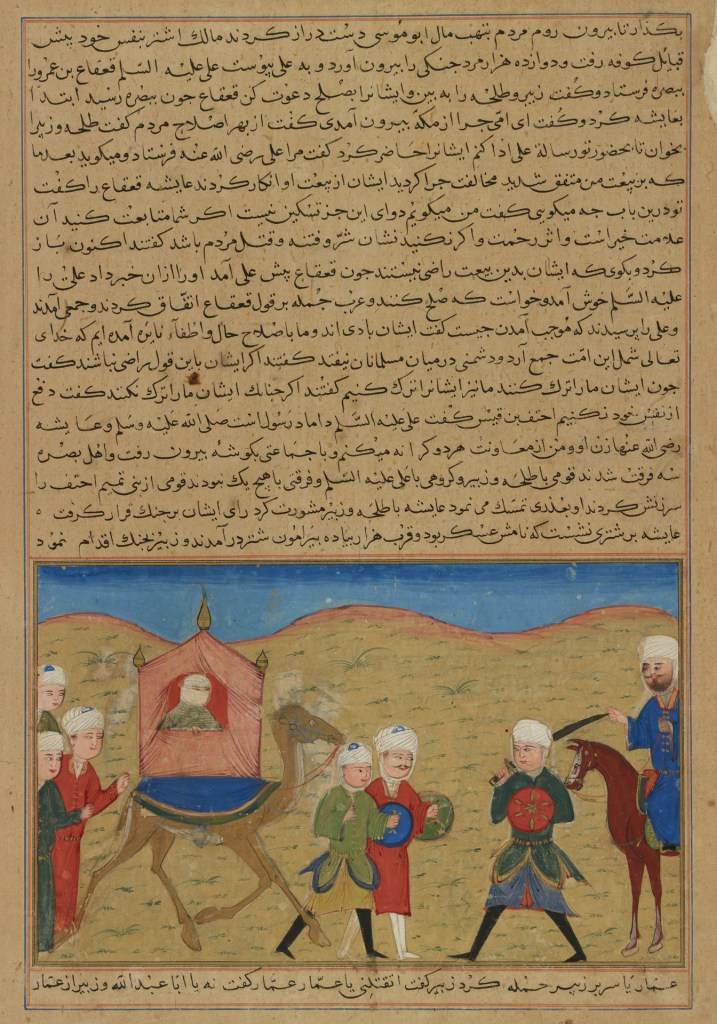 بگذار تا بیرون روم مردم بنهب مال ابوموسی دست دراز کردند مالک اشتر بنفس خود پیش
قبائل کوفه رفت و دوازده هزار مرد جنکی را بیرون آورد و به علی پیوست علی علیه السّلم قعقاع بن عمرو را
ببصره فرستاد و کفت زبیر و طلحه را به بین و ایشانرا بصلح دعوت کن قعقاع جون ببصره رسید ابتدا
بعایشه کرد و کفت ای امّی جرا از مکّه بیرون آمدی کفت از بهر اصلاح مردم کفت طلحه و زبیر را
بخوان تا بحضور تو رسالة علی ادا کنم ایشانرا حاضر کرد کفت مرا علی رضی الله عنه فرستاد و میکوید بعد ما
که بر بیعت من متفق شدید مخالفت جرا کردید ایشان از بیعت او انکار کردند عایشه قعقاع را کفت
تو درین باب جه میکویی کفت من میکویم دوای این جز تسکین نیست اکر شما متابعت کنید آن
علامت خیر است و اثر رحمت و اکر نکنید نشان شرّ و فتنه و قتل مردم باشد کفتند اکنون باز
کرد و بکوی که ایشان بدین بیعت راضی نیستند جون قعقاع پیش علی آمد او را ازان خبر داد علی را
علیه السّلم خوش آمد و خواست که صلح کنند و عرب جمله بر قول قعقاع اتّفاق کردند و جمعی آمدند
و علی را پرسیدند که موجب آمدن جیست کفت ایشان بادی اند و ما باصلاح حال و اطفآء نایره آمده ایم که خدای
تعالی شمل این امّت جمع آرد و دشمنی در میان مسلمانان نیفتد کفتند اکر ایشان باین قول راضی نباشند کفت
جون ایشان ما را ترک کنند ما نیز ایشانرا ترک کنیم کفتند اکر جنانک ایشان ما را ترک نکنند کفت دفع
از نفس خود بکنیم احنف بن قیس کفت علی علیه السّلم داماد رسول است صلی الله علیه وسلم و عایشه
رضی الله عنها زن او و من از معاونت هر دو کرانه میکنم و با جماعتی بکوشه بیرون رفت و اهل بصره
سه فرقت شدند قومی با طلحه و زبیر و کروهی با علی علیه السّلم و فرقتی با هیچ یک نبودند قومی از بنی تمیم احنف را
سرزنش کردند او بعذری تمسّک می نمود عایشه با طلحه و زبیر مشورت کرد رای ایشان بر جنک قرار کرفت
عایشه بر شتری نشست که نامش عسکر بود و قرب هزار پیاده پیرامون شتر در آمدند و زبیر بجنک اقدام نمود
عمار یاسر بر زبیر حمله کرد زبیر کفت اتقتلنی یا عمّار عمّار کفت نه یا ابا عبد الله و زبیر از عمّار